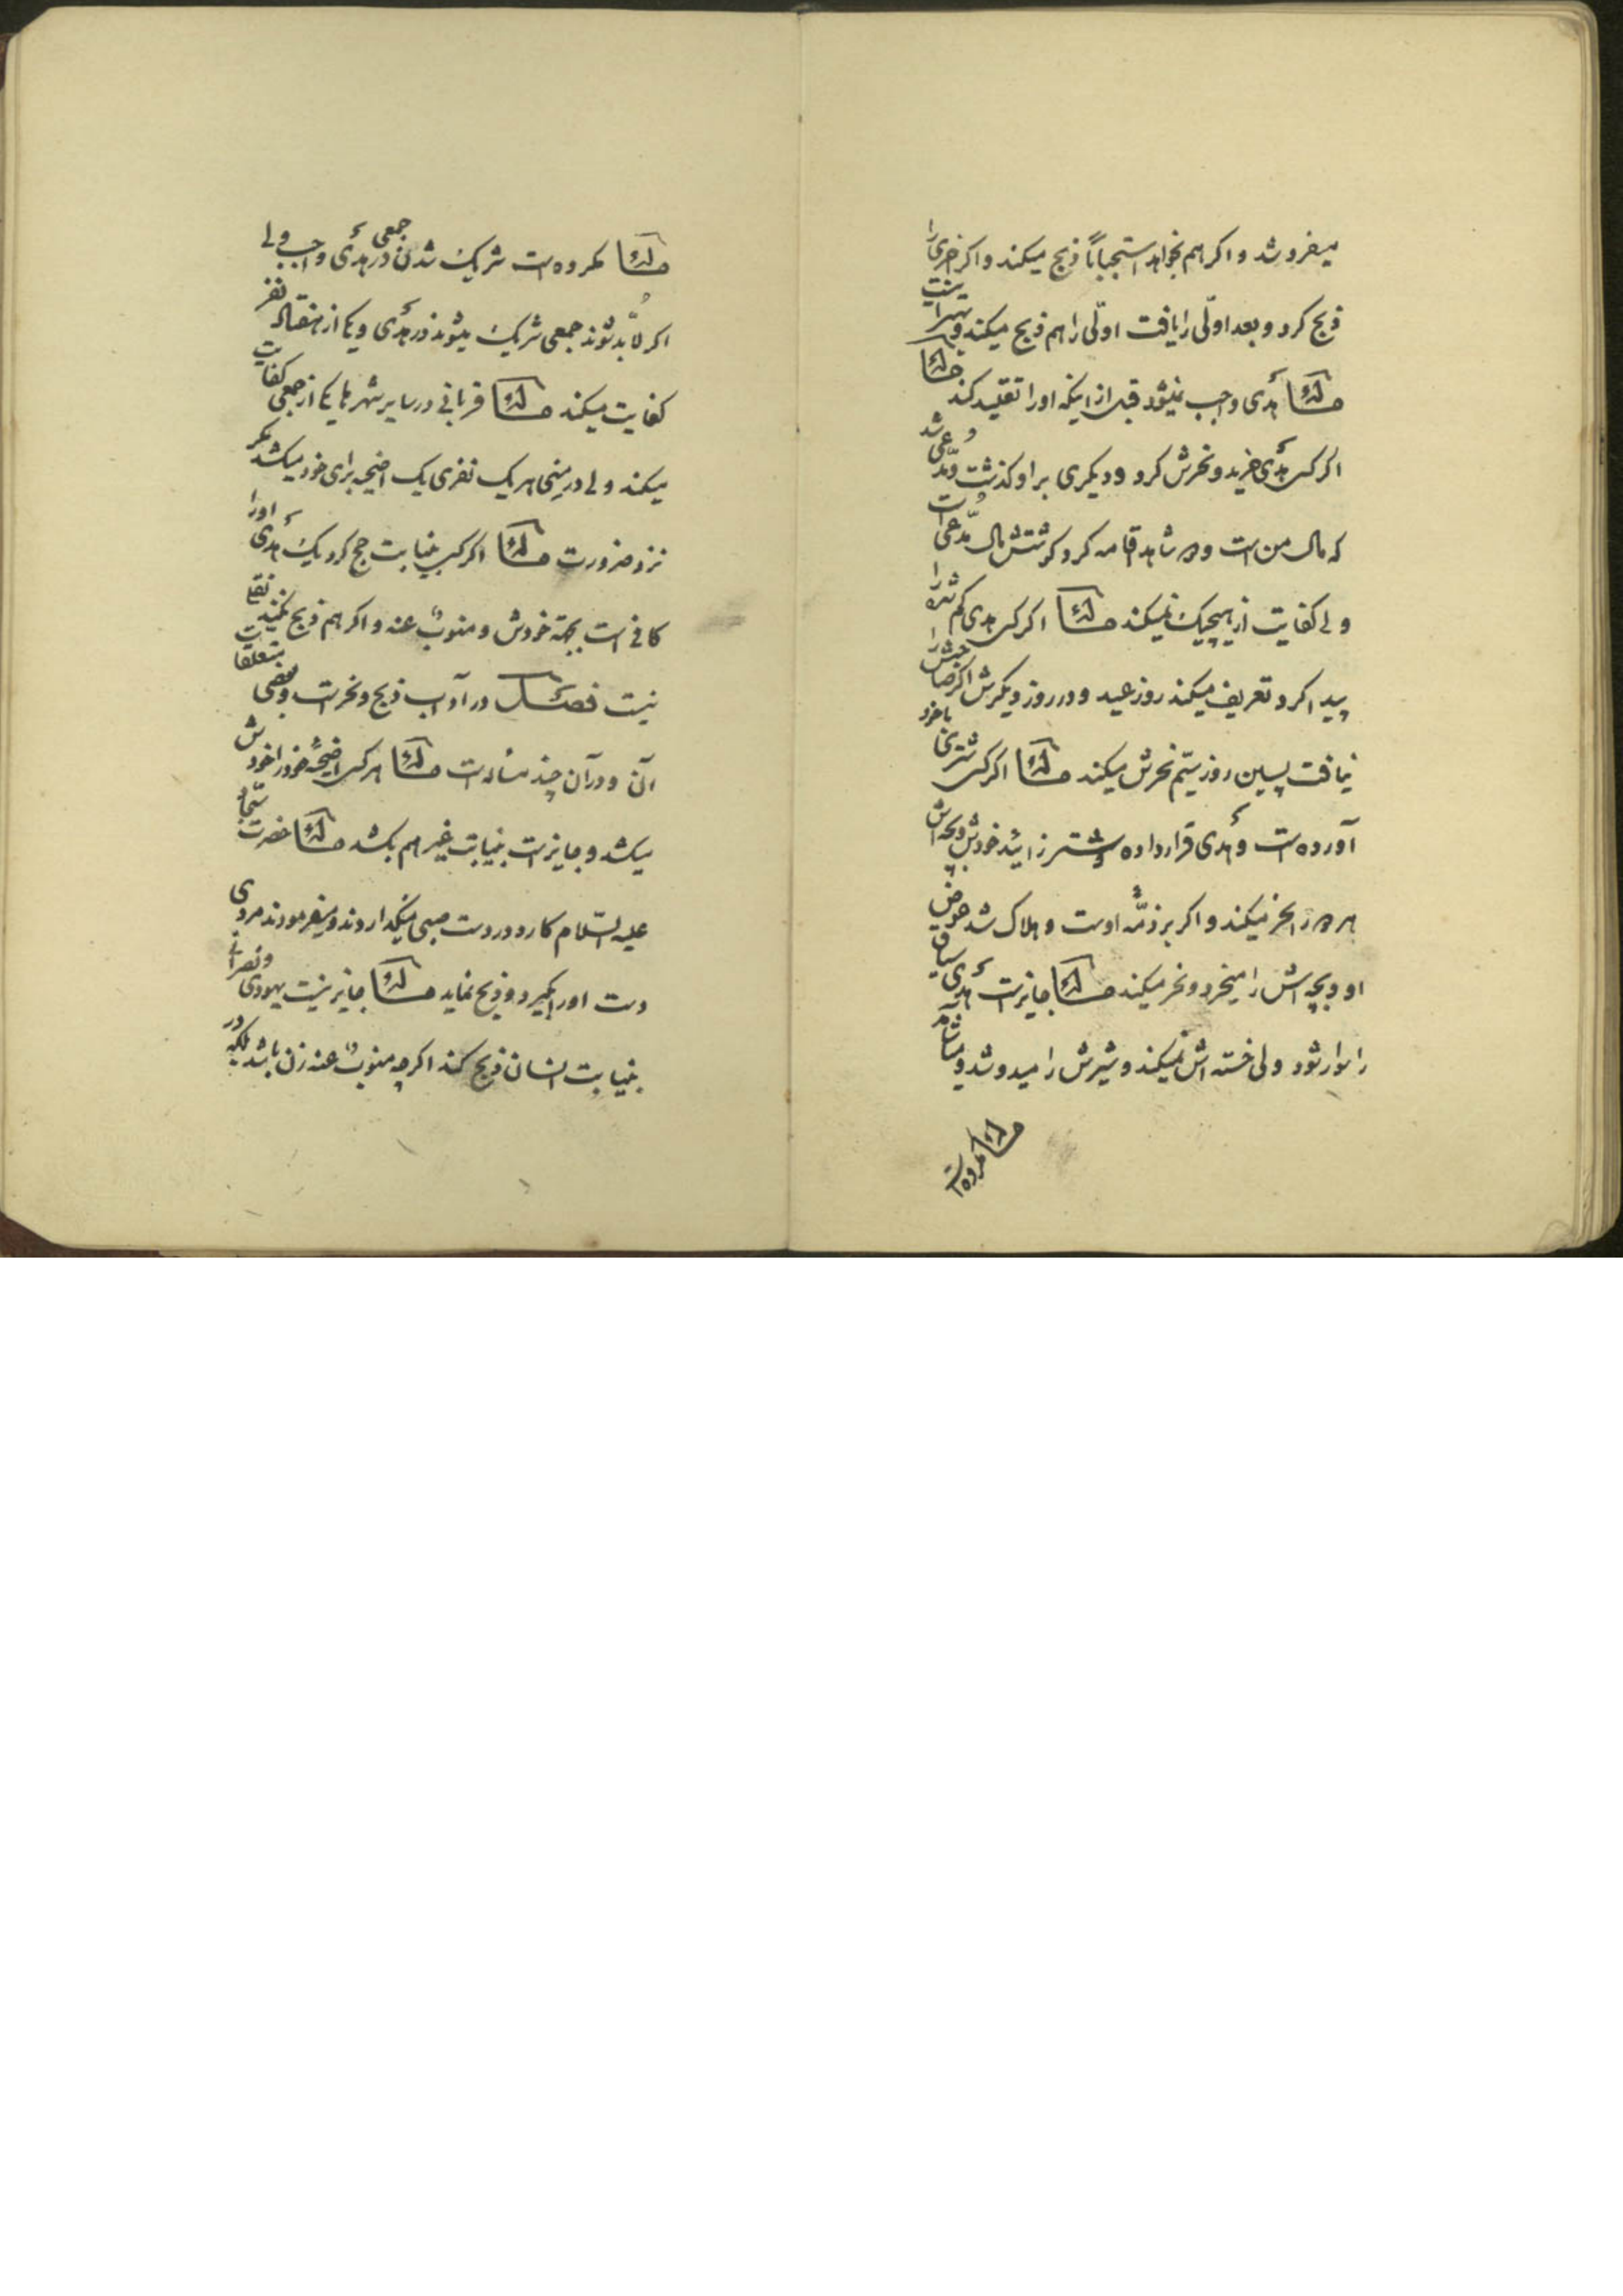 میفروشد و اکر هم بخواهد استحباباً ذبح میکند و اکر اخری را
ذبح کرد و بعد اولّی را یافت اولّی را هم ذبح میکند و بهتر است
مسئله هدی واجب نمیشود قبل از اینکه اورا تقلید کند مسئله
اکر کسی هدی خرید و نحرش کرد و دیکری بر او کذشت و مدّعی شد
که مال من است و دو شاهد اقامه کرد کوشتش مال مدّعی است
ولی کفایت از هیچیک نمیکند مسئله اکر کسی هدی کم شده را
پیدا کرد تعریف میکند روز عید و دو روز دیکرش اکر صاحبش را
نیافت پسین روز سیّم نحرش میکند مسئله اکر کسی شتری با خود
آورده است و هدی قرار داده و شتر زائید خودش و بچه اش
هر دو را نحر میکند و اکر بر ذمّه اوست و هلاک شد عوض
او و بچه اش را میخرد و نحر میکند مسئله جایز است هدی سیاق
را سوار شود ولی خسته اش نمیکند و شیرش را میدوشد و میاشامد
مسئله مکروه است
مسئله مکروه است شریک شدن جمعی در هدی واجب ولی
اکر لابُدّ شوند جمعی شریک میشوند در هدی و یکی از هفتاد نفر
کفایت میکند مسئله قربانی در سایر شهرها یکی از جمعی کفایت
میکند ولی در منی هر یک نفری یک اضحیه برای خود میکشد مکر
نزد ضرورت مسئله اکر کسی بنیابت حج کرد یک هدی او را
کافی است بجهة خودش و منوب عنه و اکر هم ذبح نکند نقلی
نیست فصل در آداب ذبح و نحر است و بعضی متعلقات
آن و در آن چند مسئله است مسئله هر کس اضحیه خود را خودش
میکشد و جایز است بنیابت غیر هم بکشد مسئله حضرت سجّاد
علیه السّلام کارد در دست صبی میکذاردند و میفرمودند مردی
دست او را بکیرد و ذبح نماید مسئله جایز نیست یهودی و نصرانی
بنیابت انسان ذبح کند اکرچه منوب عنه زن باشد بلکه در